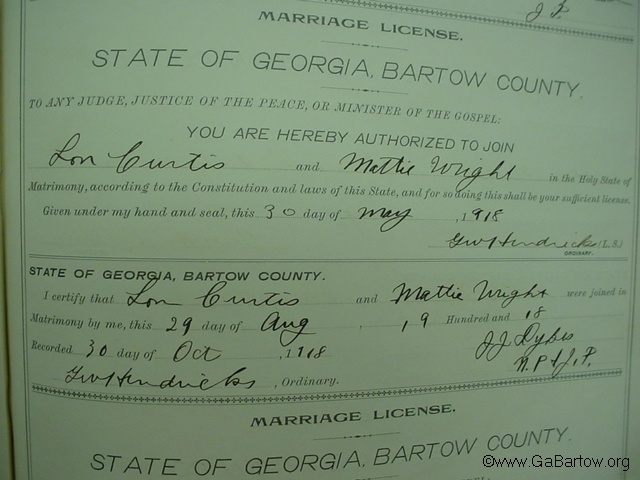 J P.
MARRIAGE LICENSE.
STATE OF GEORGIA, BARTOW COUNTY.
TO ANY JUDGE, JUSTICE OF THE PEACE, OR MINISTER OF THE GOSPEL:
YOU ARE HEREBY AUTHORIZED TO JOIN
Lon Curtis and Mattie Wright in the Holy State of
Matrimony, according to the Constitution and laws of this State, and for so doing this shall be your sufficient license.
Given under my hand and seal, this 30 day of May, 1918
GW Hendricks (L.S.)
ORDINARY.
STATE OF GEORGIA, BARTOW COUNTY.
I certify that Lon Curtis and Mattie Wright were joined in
Matrimony by me, this 29 day of Aug, 19 Hundred and 18
Recorded 30 day of Oct, 1918 J J Dykes
GW Hendricks, Ordinary. N.P. & J.P.
MARRIAGE LICENSE.
STATE OF GEORGIA, BARTOW COUNTY.
©www.GaBartow.org